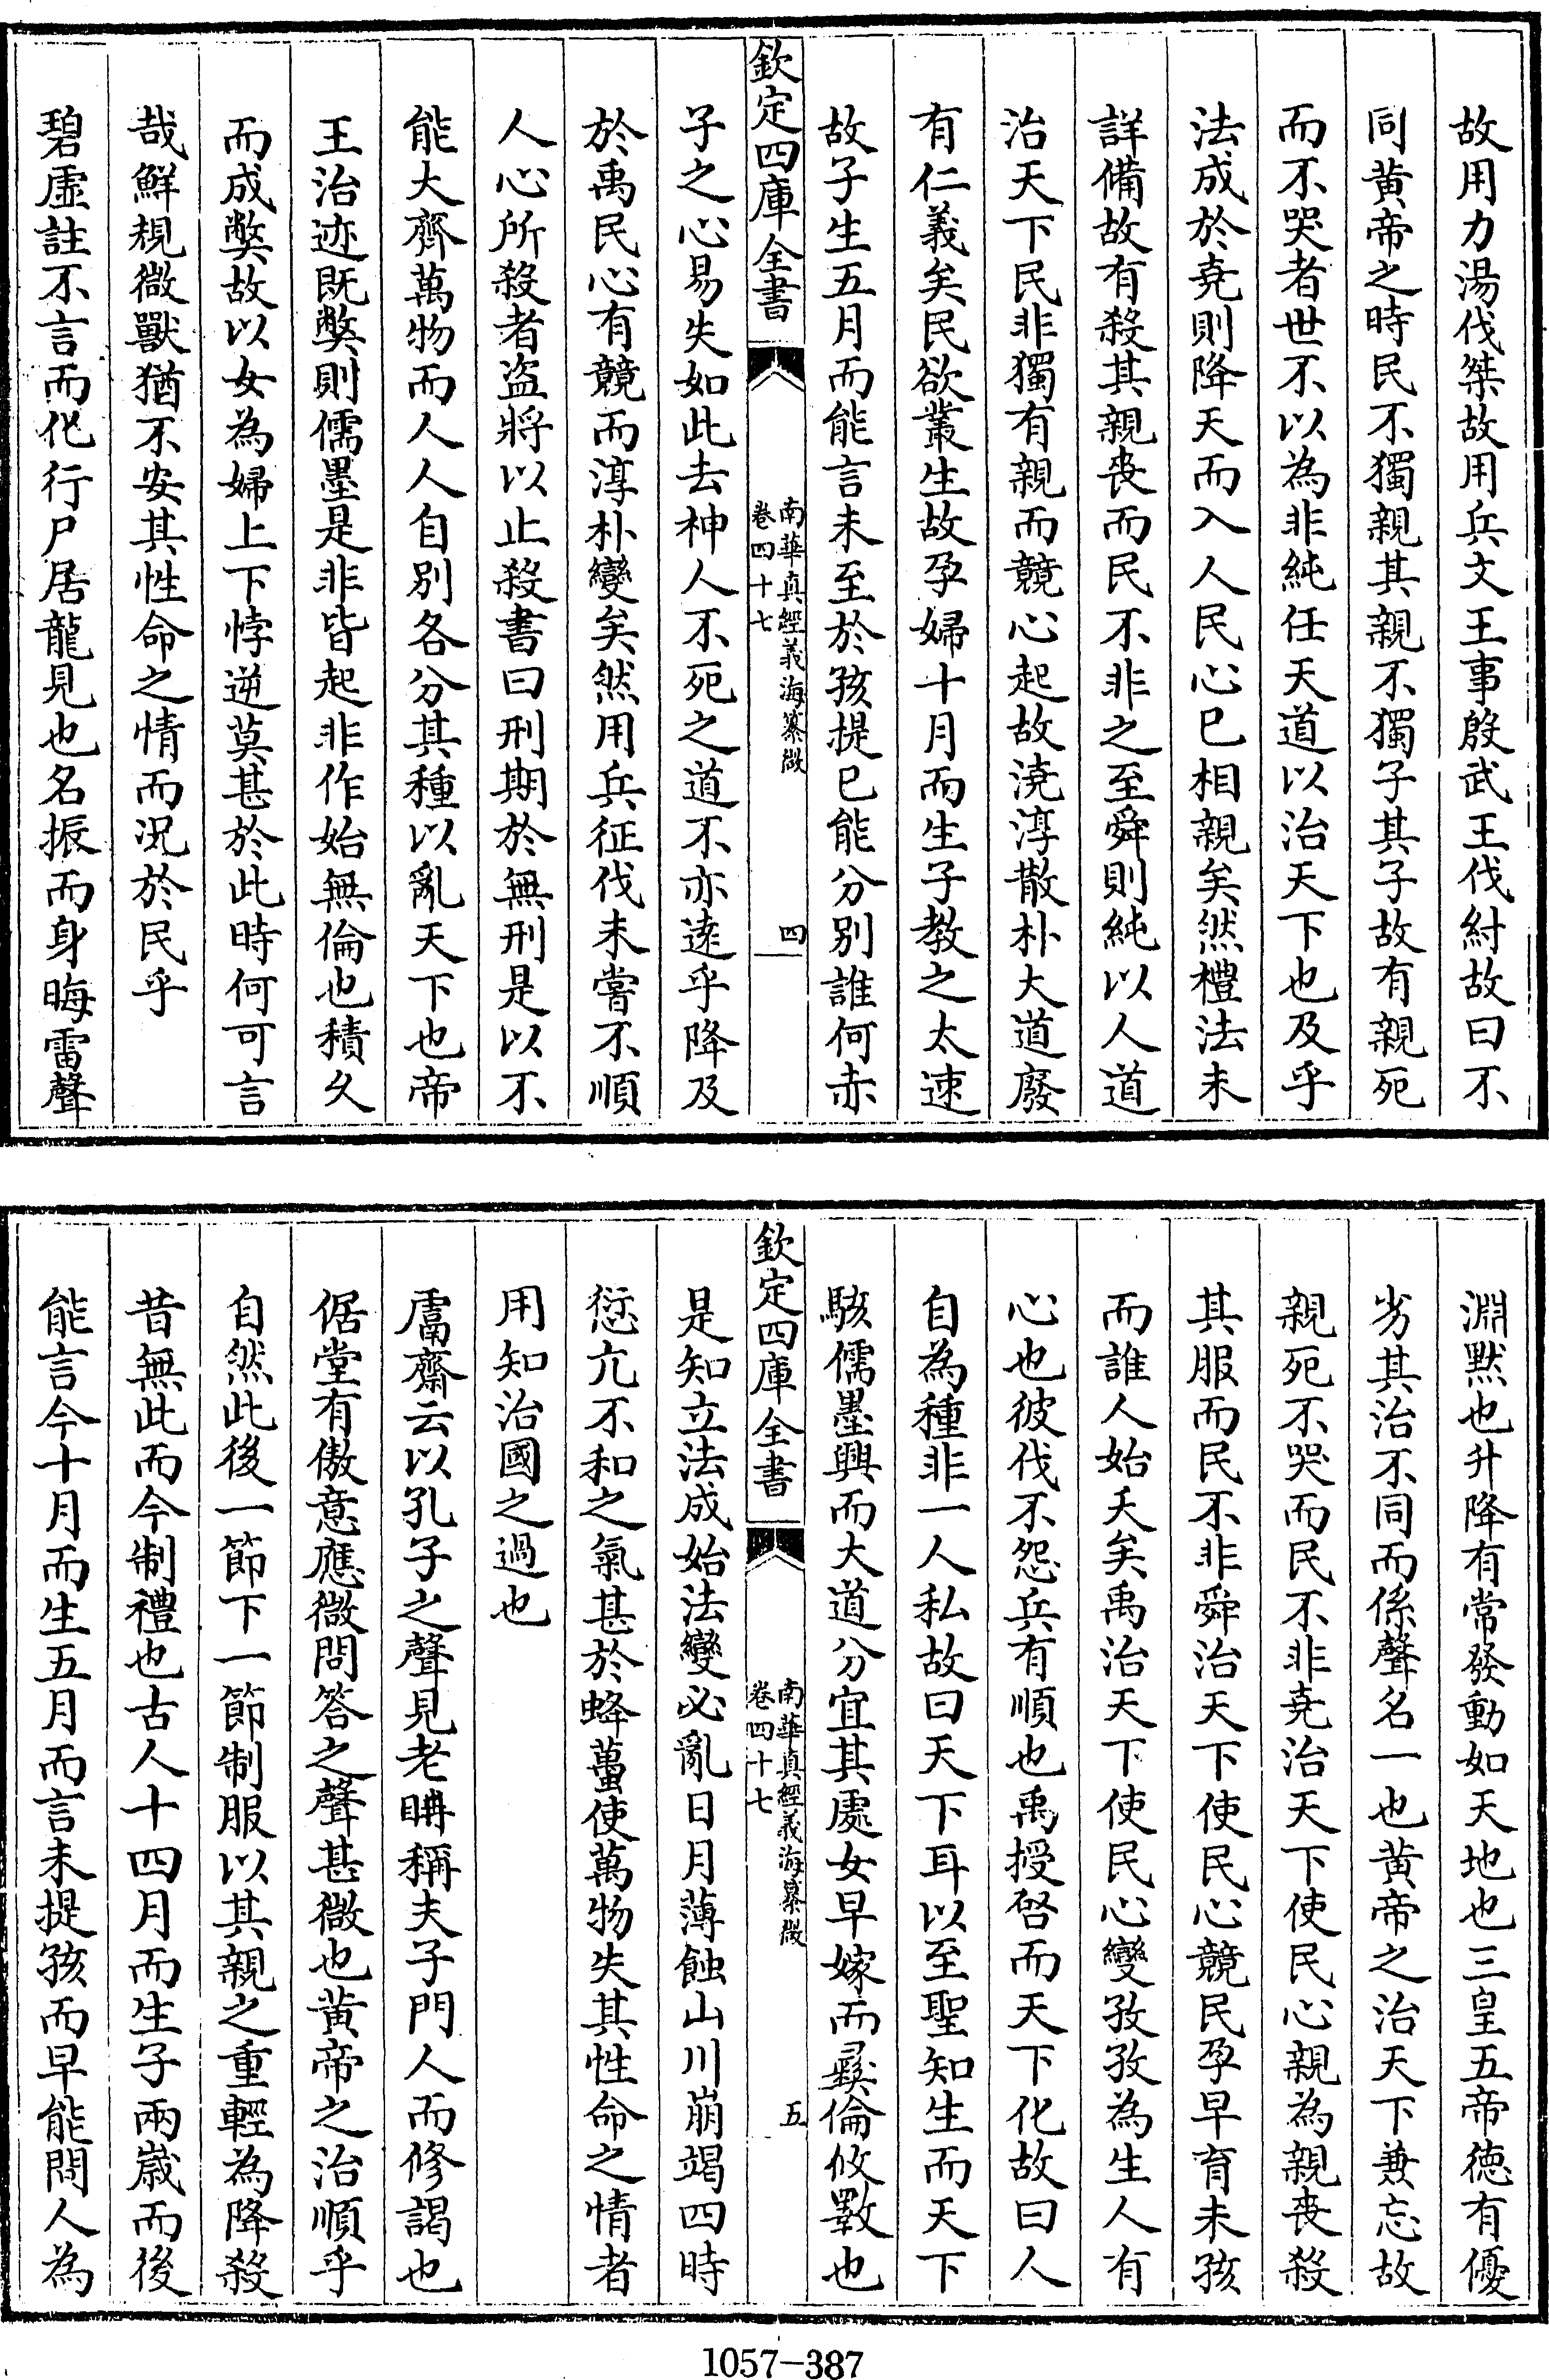 故用力湯伐桀故用兵文王事殷武王伐紂故曰不
同黄帝之時民不獨親其親不獨子其子故有親死
而不哭者世不以為非純任天道以治天下也及乎
法成於堯則降天而入人民心已相親矣然禮法未
詳備故有殺其親喪而民不非之至舜則純以人道
治天下民非獨有親而競心起故澆淳散朴大道廢
有仁義矣民欲叢生故孕婦十月而生子教之太速
故子生五月而能言未至於孩提已能分別誰何赤
欽定四庫全書
南華真經義海纂微
卷四十七
四
子之心易失如此去神人不死之道不亦遠乎降及
於禹民心有競而淳朴變矣然用兵征伐未嘗不順
人心所殺者盜將以止殺書曰刑期於無刑是以不
能大齊萬物而人人自別各分其種以亂天下也帝
王治迹既弊則儒墨是非皆起非作始無倫也積久
而成弊故以女為婦上下悖逆莫甚於此時何可言
哉鮮規微獸猶不安其性命之情而況於民乎
碧虛註不言而化行尸居龍見也名振而身晦雷聲
淵默也升降有常發動如天地也三皇五帝德有優
劣其治不同而係聲名一也黄帝之治天下兼忘故
親死不哭而民不非堯治天下使民心親為親喪殺
其服而民不非舜治天下使民心競民孕早育未孩
而誰人始夭矣禹治天下使民心變孜孜為生人有
心也彼伐不怨兵有順也禹授啓而天下化故曰人
自為種非一人私故曰天下耳以至聖知生而天下
駭儒墨興而大道分宜其處女早嫁而彛倫攸斁也
欽定四庫全書
南華真經義海纂微
卷四十七
五
是知立法成始法變必亂日月薄蝕山川崩竭四時
愆亢不和之氣甚於蜂蠆使萬物失其性命之情者
用知治國之過也
鬳齋云以孔子之聲見老聃稱夫子門人而修謁也
倨堂有傲意應微問答之聲甚微也黄帝之治順乎
自然此後一節下一節制服以其親之重輕為降殺
昔無此而今制禮也古人十四月而生子兩嵗而後
能言今十月而生五月而言未提孩而早能問人為
1057-387